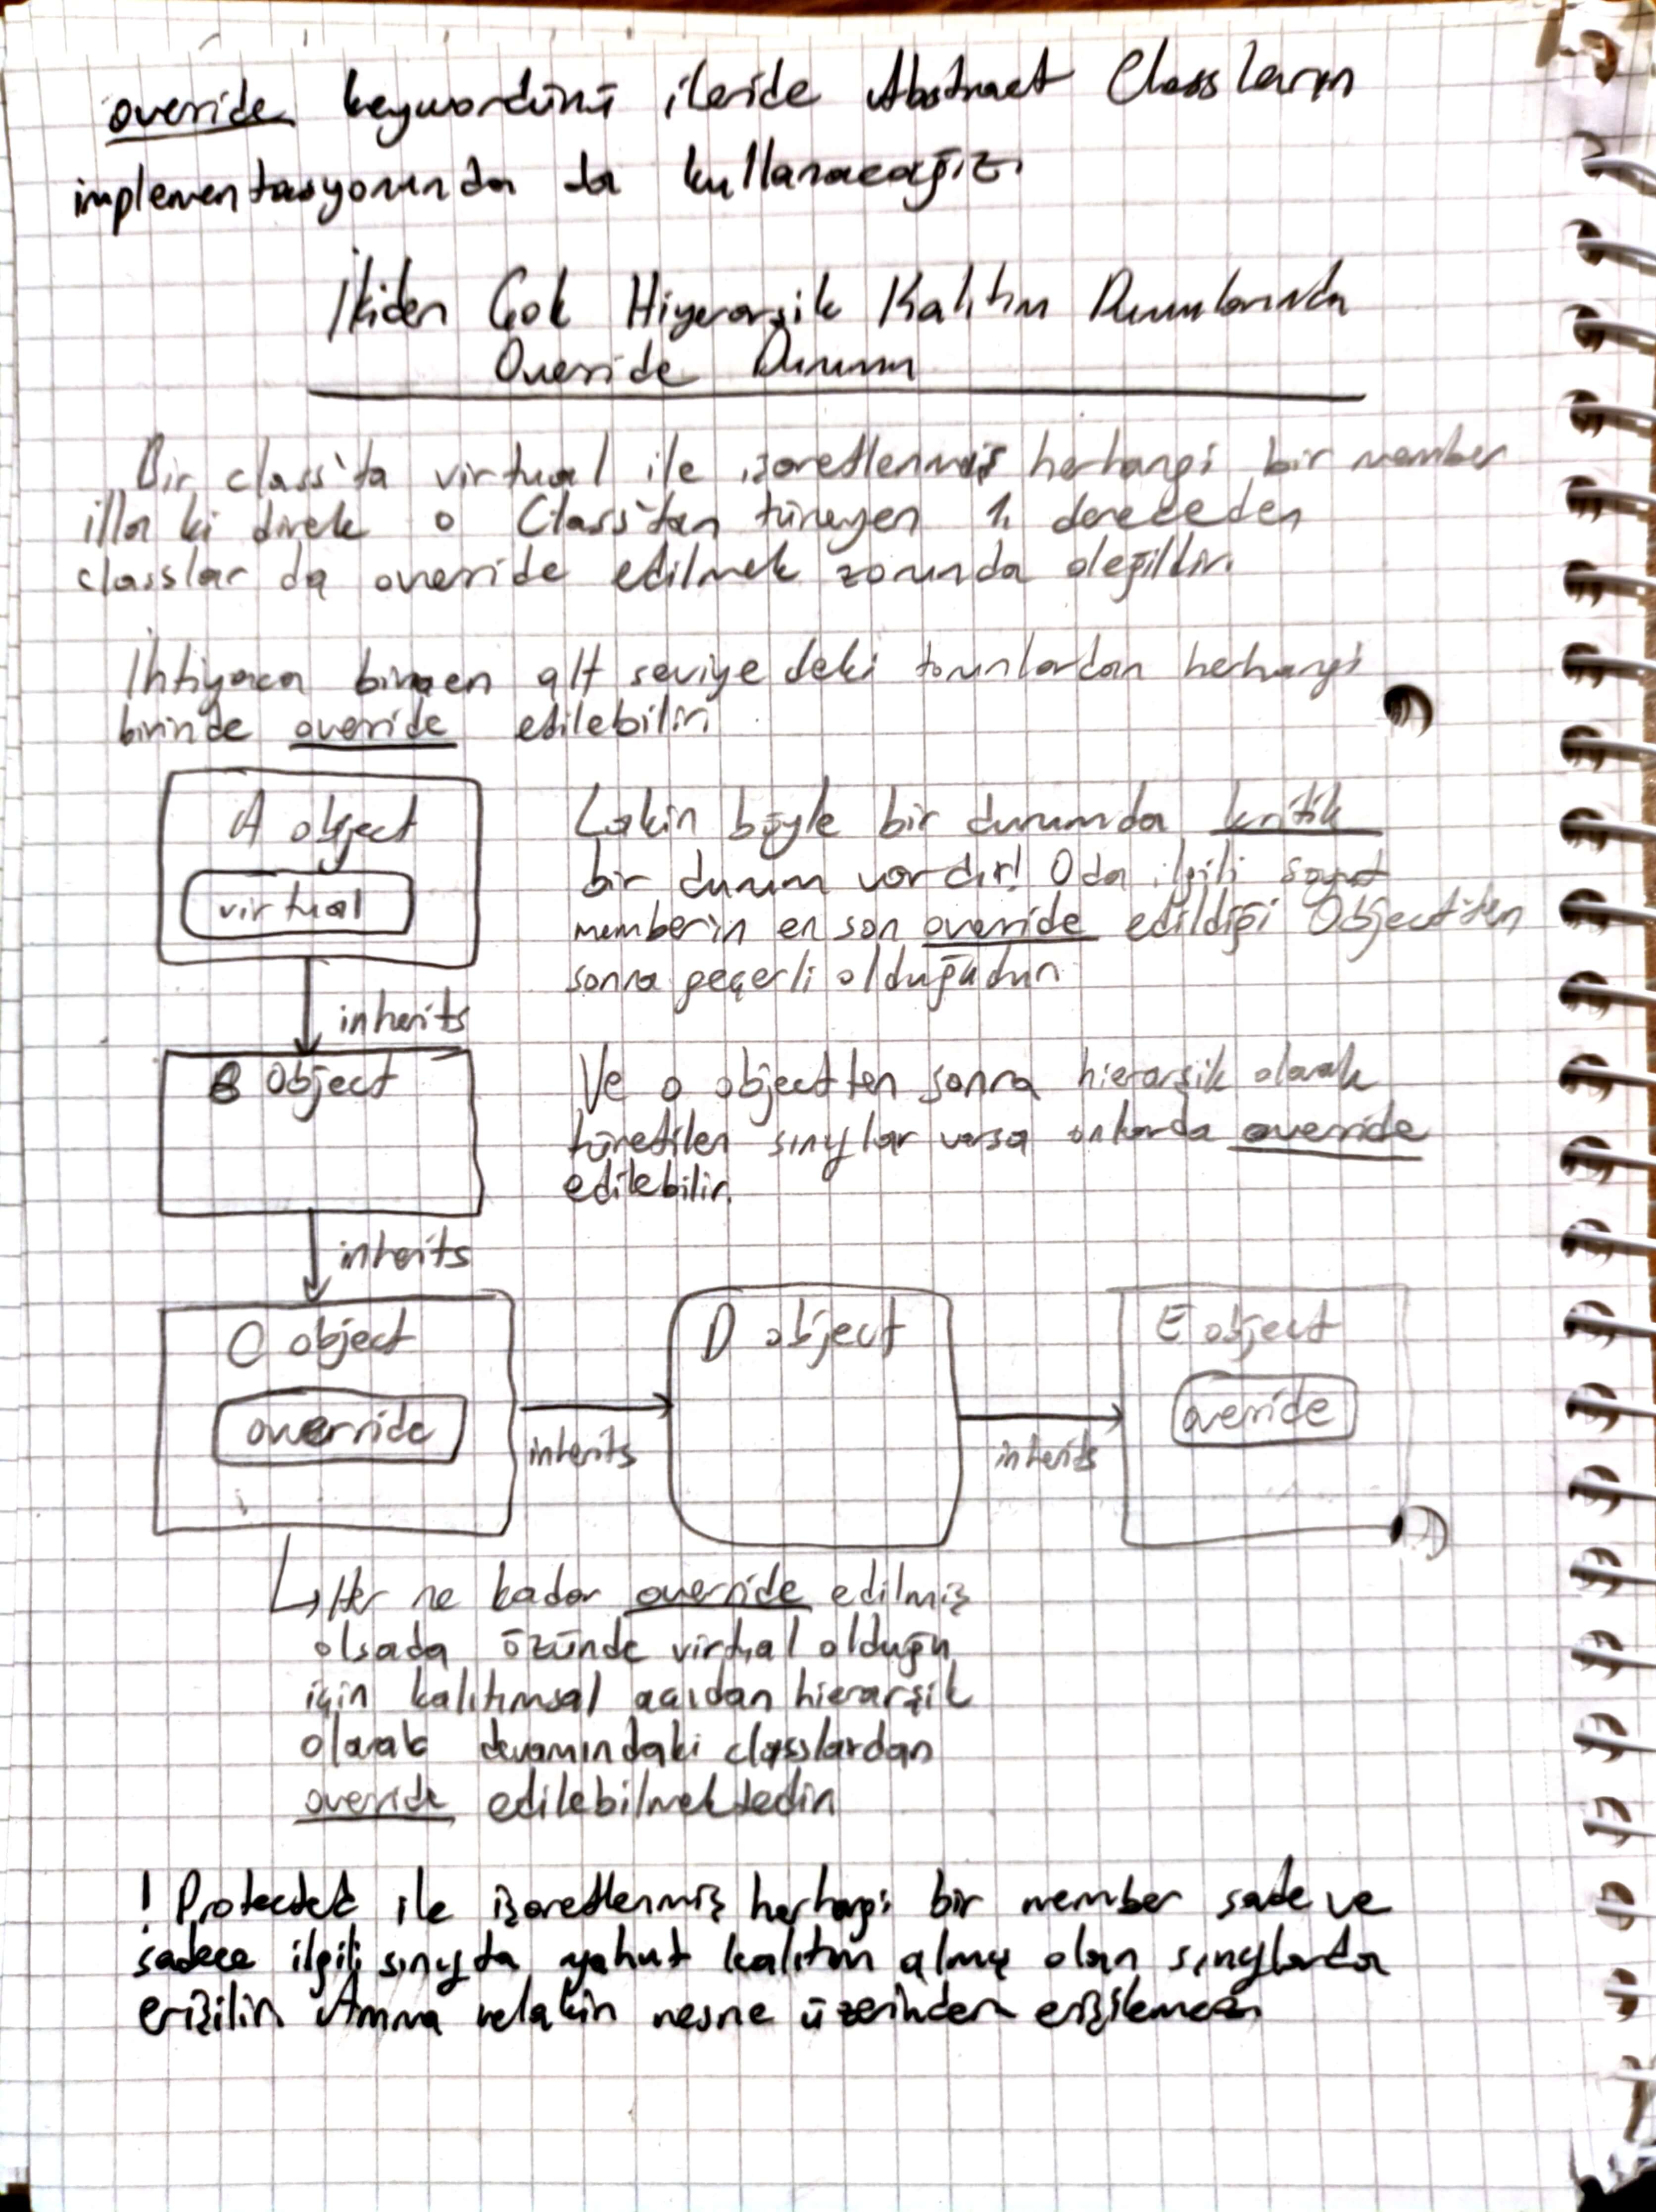 override keywordünü ileride Abstract Classların
implementasyonunda da kullanacağız.
İkiden Çok Hiyerarşik Kalıtım Durumlarında
Override Durumu
Bir class'ta virtual ile işaretlenmiş herhangi bir member
illa ki direk o Class'tan türeyen 1. dereceden
classlar da override edilmek zorunda değildir.
İhtiyaca binaen alt seviyedeki torunlardan herhangi
birinde override edilebilir.
A object
virtual
Lakin böyle bir durumda kritik
bir durum vardır! O da ilgili
memberin en son override edildiği Object'ten
sonra geçerli olduğudur.
inherits
B Object
Ve o objectten sonra hierarşik olarak
türetilen sınıflar varsa onlarda override
edilebilir.
inherits
C object
override
inherits
D object
inherits
E object
override
↳ Her ne kadar override edilmiş
olsada özünde virtual olduğu
için kalıtımsal açıdan hierarşik
olarak devamındaki classlardan
override edilebilmektedir.
! Protected ile işaretlenmiş herhangi bir member sade ve
sadece ilgili sınıfta yahut kalıtım almış olan sınıflarda
erişilir. Amma velakin nesne üzerinden erişilemez.